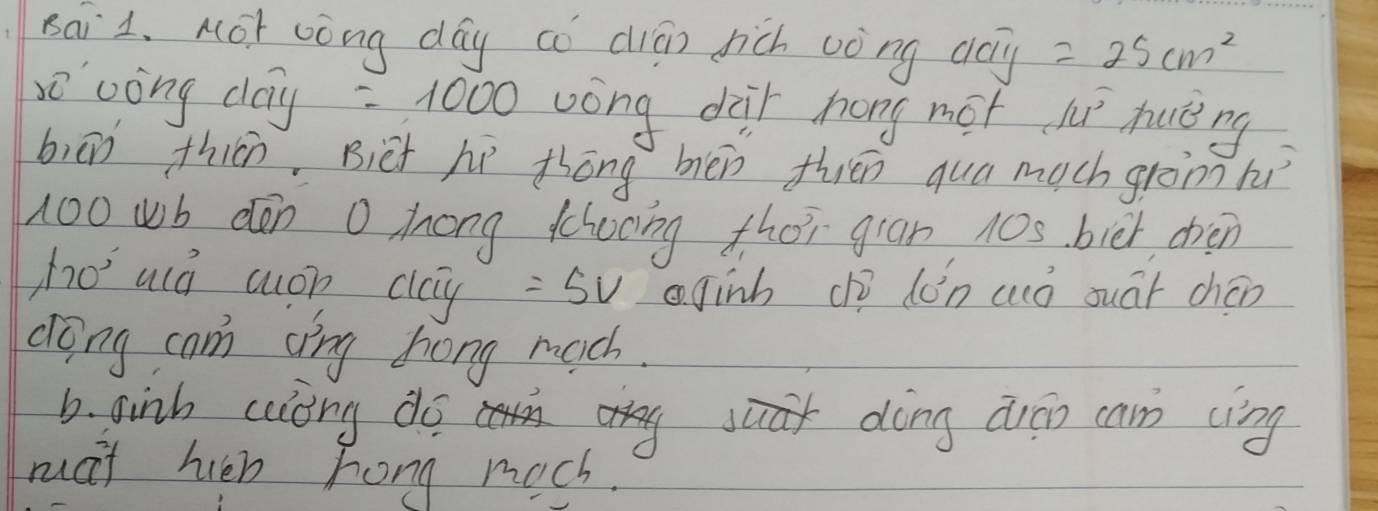 Bài 1. Một vòng dây có diện tích vòng dây = 25 cm²
số vòng dây = 1000 vòng đặt trong một từ trường
biến thiên. Biết từ thông biến thiên qua mạch giảm từ
100 wb đến 0 trong khoảng thời gian 10s. biết điện
trở của cuộn dây = 5V a tính độ lớn của suất điện
động cảm ứng trong mạch.
b. tính cường độ dòng điện cảm ứng
xuất hiện trong mạch.